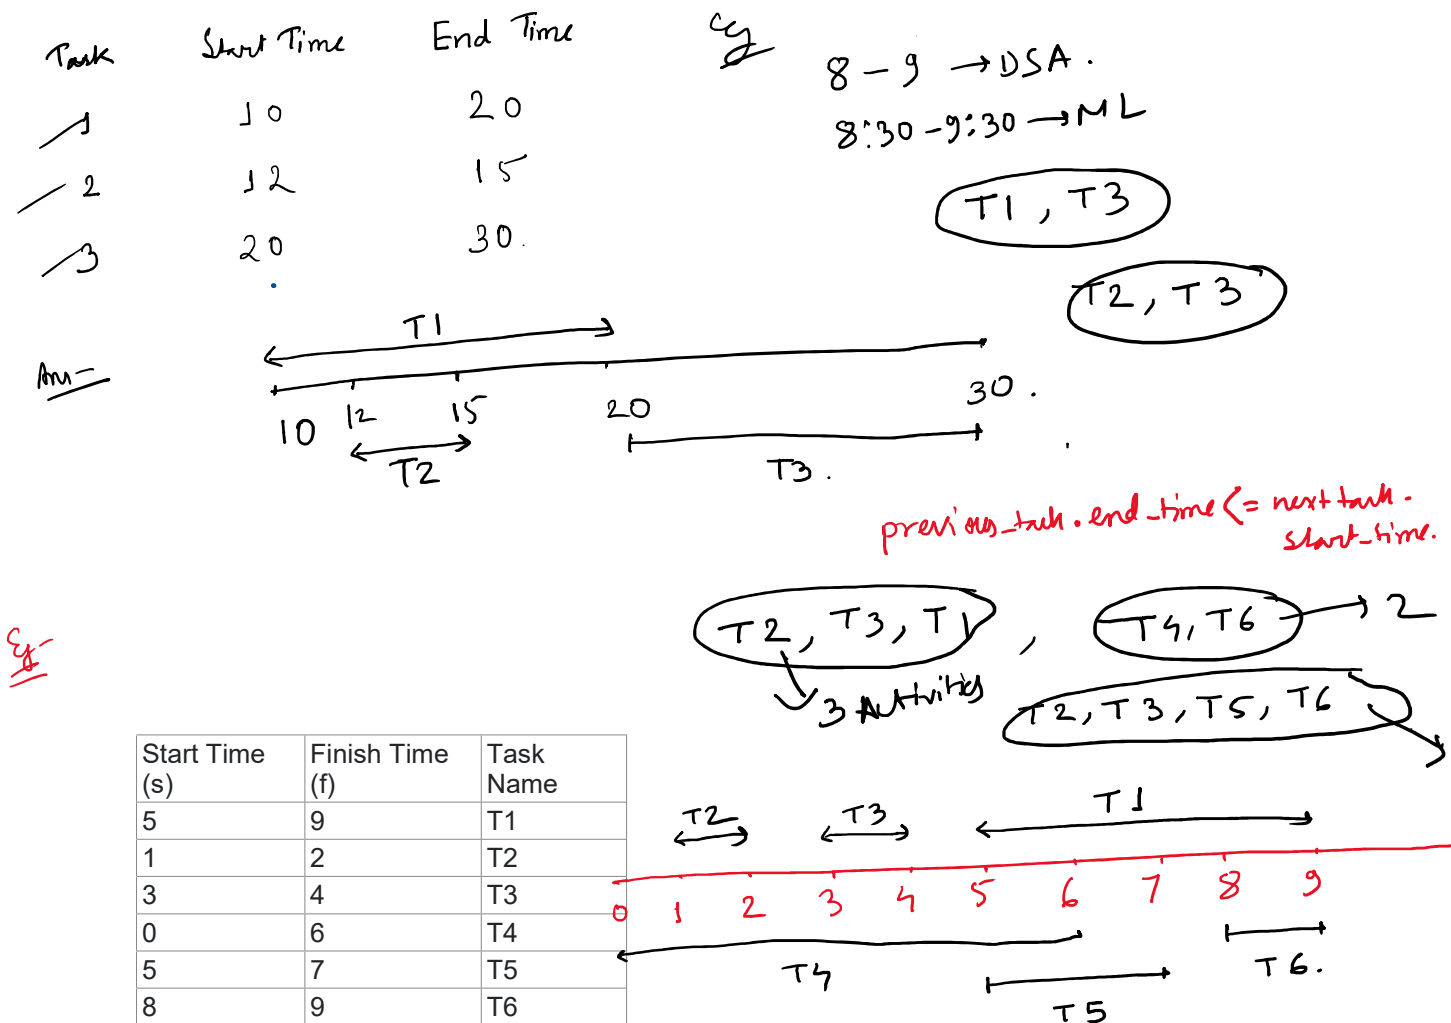 Task Start Time End Time
1 10 20
2 12 15
3 20 30.
Eg
8 - 9 → DSA.
8:30 - 9:30 → ML
T1, T3
T2, T3
Ans-
T1
10 12 15 20 30.
T2 T3.
previous_task.end_time <= next task.
start_time.
Eg-
T2, T3, T1, T4, T6 → 2
3 Activities
T2, T3, T5, T6
Start Time (s) Finish Time (f) Task Name
5 9 T1
1 2 T2
3 4 T3
0 6 T4
5 7 T5
8 9 T6
T2 T3 T1
0 1 2 3 4 5 6 7 8 9
T4 T5 T6.